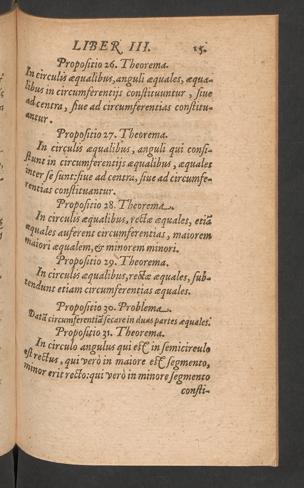 LIBER III. 15.
Propositio 26. Theorema.
In circulis æqualibus, anguli æquales, æqua-
libus in circumferentijs constituuntur, siue
ad centra, siue ad circumferentias constitu-
antur.
Propositio 27. Theorema.
In circulis æqualibus, anguli qui consi-
stunt in circumferentijs æqualibus, æquales
inter se sunt: siue ad centra, siue ad circumfe-
rentias constituantur.
Propositio 28. Theorema.
In circulis æqualibus, rectæ æquales, etiã
æquales auferent circumferentias, maiorem
maiori æqualem, & minorem minori.
Propositio 29. Theorema.
In circulis æqualibus, rectæ æquales, sub-
tendunt etiam circumferentias æquales.
Propositio 30. Problema.
Datã circumferentiã secare in duas partes æquales.
Propositio 31. Theorema.
In circulo angulus qui est in semicirculo
est rectus, qui verò in maiore est segmento,
minor erit recto: qui verò in minore segmento
consti-